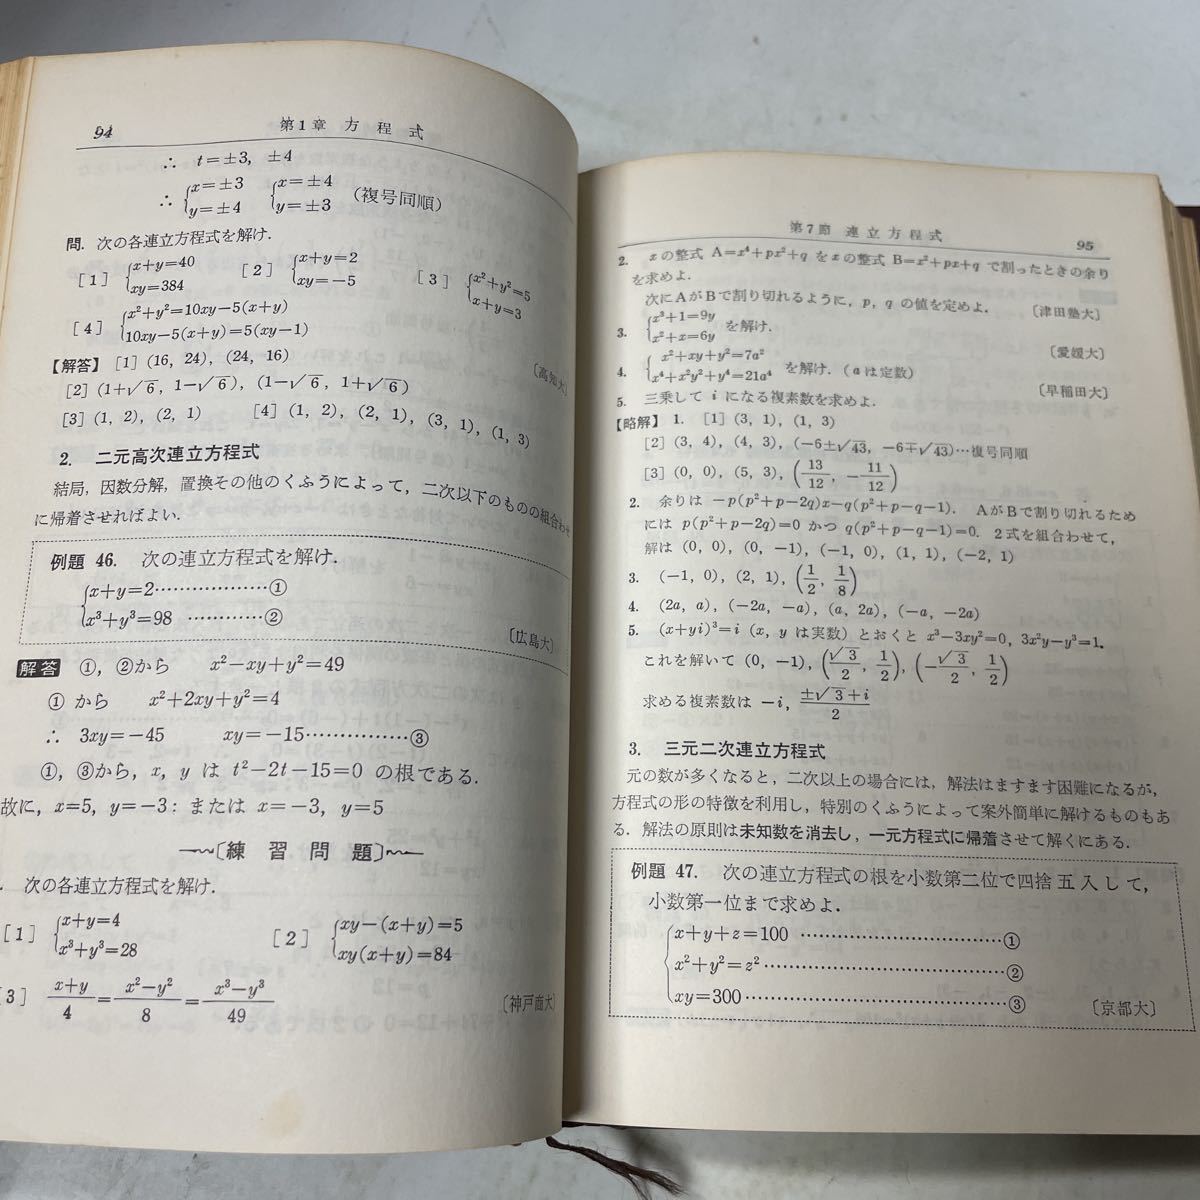 94
第1章 方程式
∴ t=±3, ±4
∴ {x=±3 {x=±4 (複号同順)
{y=±4 {y=±3
問. 次の各連立方程式を解け.
[1] {x+y=40 [2] {x+y=2 [3] {x²+y²=5
{xy=384 {xy=−5 {x+y=3
[4] {x²+y²=10xy−5(x+y)
{10xy−5(x+y)=5(xy−1)
〔高知大〕
【解答】 [1] (16, 24), (24, 16)
[2] (1+√6, 1−√6), (1−√6, 1+√6)
[3] (1, 2), (2, 1) [4] (1, 2), (2, 1), (3, 1), (1, 3)
2. 二元高次連立方程式
結局, 因数分解, 置換その他のくふうによって, 二次以下のものの組合わせ
に帰着させればよい.
例題 46. 次の連立方程式を解け.
{x+y=2………………①
{x³+y³=98 …………②
〔広島大〕
解答 ①, ②から x²−xy+y²=49
①から x²+2xy+y²=4
∴ 3xy=−45 xy=−15……………③
①, ③から, x, y は t²−2t−15=0 の根である.
故に, x=5, y=−3: または x=−3, y=5
〔練習問題〕
. 次の各連立方程式を解け.
[1] {x+y=4 [2] {xy−(x+y)=5
{x³+y³=28 {xy(x+y)=84
[3] (x+y)/4=(x²−y²)/8=(x³−y³)/49
〔神戸商大〕
第7節 連立方程式
95
2. xの整式 A=x⁴+px²+q をxの整式 B=x²+px+q で割ったときの余り
を求めよ.
次にAがBで割り切れるように, p, q の値を定めよ. 〔津田塾大〕
3. {x³+1=9y
{x²+x=6y を解け. 〔愛媛大〕
4. {x²+xy+y²=7a²
{x⁴+x²y²+y⁴=21a⁴ を解け. (aは定数) 〔早稲田大〕
5. 三乗して i になる複素数を求めよ.
【略解】 1. [1] (3, 1), (1, 3)
[2] (3, 4), (4, 3), (−6±√43, −6∓√43)…複号同順
[3] (0, 0), (5, 3), (13/12, −11/12)
2. 余りは −p(p²+p−2q)x−q(p²+p−q−1). AがBで割り切れるため
には p(p²+p−2q)=0 かつ q(p²+p−q−1)=0. 2式を組合わせて,
解は (0, 0), (0, −1), (−1, 0), (1, 1), (−2, 1)
3. (−1, 0), (2, 1), (1/2, 1/8)
4. (2a, a), (−2a, −a), (a, 2a), (−a, −2a)
5. (x+yi)³=i (x, y は実数) とおくと x³−3xy²=0, 3x²y−y³=1.
これを解いて (0, −1), (√3/2, 1/2), (−√3/2, 1/2)
求める複素数は −i, (±√3+i)/2
3. 三元二次連立方程式
元の数が多くなると, 二次以上の場合には, 解法はますます困難になるが,
方程式の形の特徴を利用し, 特別のくふうによって案外簡単に解けるものもあ
る. 解法の原則は未知数を消去し, 一元方程式に帰着させて解くにある.
例題 47. 次の連立方程式の根を小数第二位で四捨五入して,
小数第一位まで求めよ.
{x+y+z=100 ……………………………①
{x²+y²=z²…………………………………②
{xy=300……………………………………③
〔京都大〕